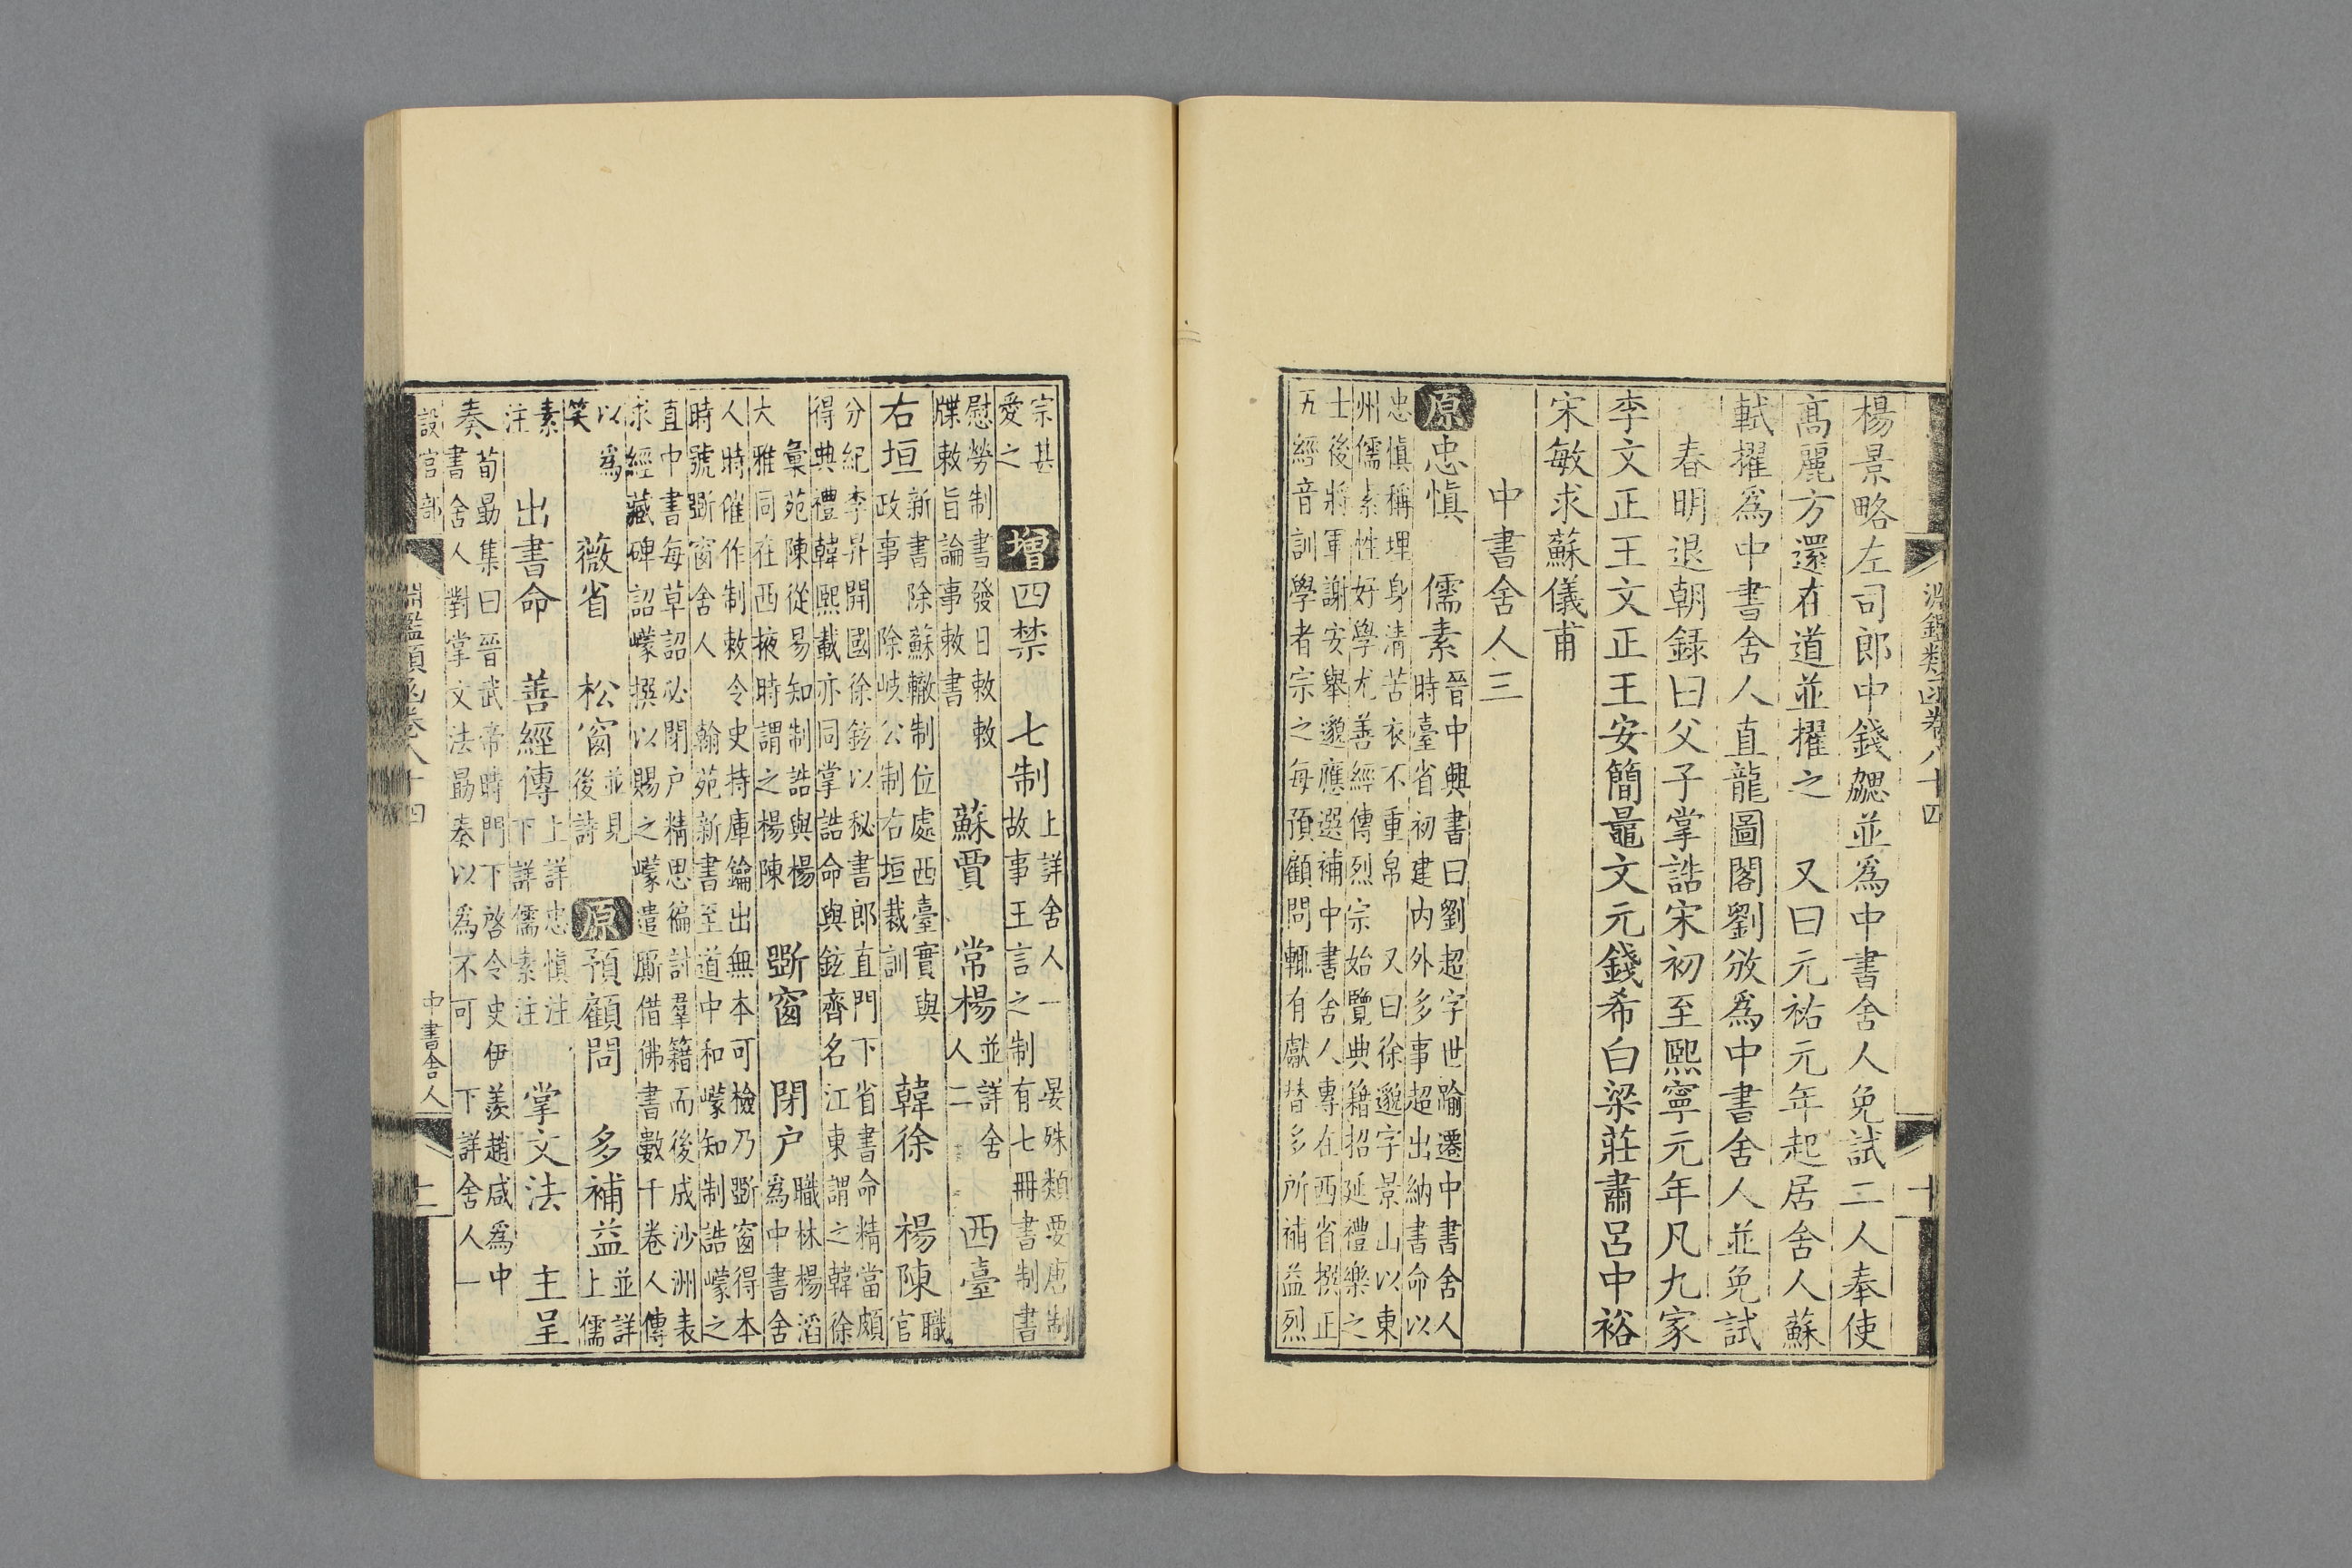 淵鑑類函卷八十四
十
楊景略左司郎中錢勰並爲中書舍人免試二人奉使
高麗方還在道並擢之 又曰元祐元年起居舍人蘇
軾擢爲中書舍人直龍圖閣劉攽爲中書舍人並免試
春明退朝録曰父子掌誥宋初至熙寧元年凡九家
李文正王文正王安簡鼂文元錢希白梁莊肅呂中裕
宋敏求蘇儀甫
中書舍人三
原忠慎 儒素晉中興書曰劉超字世踰遷中書舍人
時臺省初建内外多事超出納書命以
忠慎稱埋身清苦衣不重帛 又曰徐邈字景山以東
州儒素性好學尤善經傳烈宗始覽典籍招延禮樂之
士後將軍謝安舉邈應選補中書舍人專在西省撰正
五經音訓學者宗之每預顧問輒有獻替多所補益烈
宗甚
愛之
增四禁 七制上詳舍人一 晏殊類要唐制
故事王言之制有七冊書制書
慰勞制書發日敕敕
牒敕旨論事敕書
蘇賈 常楊並詳舍
人二
西臺
右垣新書除蘇轍制位處西臺實與
政事 除岐公制右垣裁訓
韓徐 楊陳職
官
分紀李昇開國徐鉉以秘書郎直門下省書命精當頗
得典禮韓熙載亦同掌誥命與鉉齊名江東謂之韓徐
彙苑陳從易知制誥與楊
大雅同在西掖時謂之楊陳
斲窗 閉户職林楊滔
爲中書舍
人時催作制敕令史持庫鑰出無本可檢乃斲窗得本
時號斲窗舍人 翰苑新書至道中和㠓知制誥㠓之
直中書每草詔必閉户精思徧討羣籍而後成沙洲表
求經藏碑詔㠓撰以賜之㠓遣厮借佛書數千卷人傳
以爲
笑
薇省 松窗並見
後詩
原預顧問 多補益並詳
上儒
素
注
出書命 善經傳上詳忠慎注
下詳儒素注
掌文法 主呈
奏荀勗集曰晉武帝時門下啓令史伊羨趙咸爲中
書舍人對掌文法勗奏以爲不可 下詳舍人一
設官部
淵鑑類函卷八十四
中書舍人